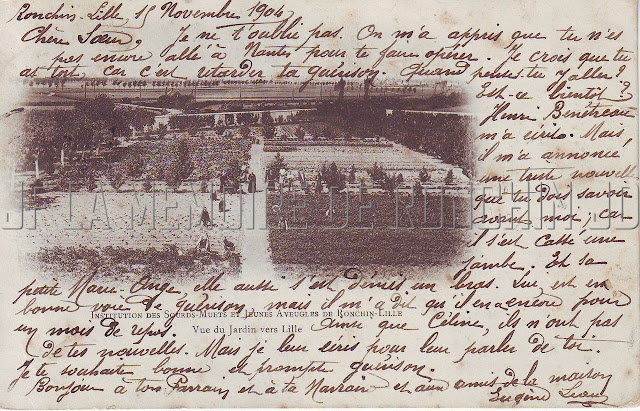 Ronchin-Lille, 15 Novembre 1904
Chère Sœur, Je ne t'oublie pas. On m'a appris que tu n'es
pas encore allé à Nantes pour te faire opérer. Je crois que tu
as tort, car c'est retarder ta guérison. Quand penses tu y aller?
Est-ce bientôt?
Henri Bénéteau
m'a écrit. Mais,
il m'a annoncé
une triste nouvelle
que tu dois savoir
avant moi; car
il s'est cassé une
jambe. Et sa
petite Marie-Ange, elle aussi s'est démis un bras. Lui, est en
bonne voie de guérison, mais il m'a dit qu'il en a encore pour
un mois de repos. Ainsi que Céline, ils n'ont pas
de tes nouvelles. Mais je leur écris pour leur parler de toi.
Je te souhaite bonne et prompte guérison.
Bonjour à ton Parrain et à ta Marraine et aux amis de la maison
Eugène
INSTITUTION DES SOURDS-MUETS ET JEUNES AVEUGLES DE RONCHIN-LILLE
Vue du Jardin vers Lille
LA MEMOIRE DE RONCHIN